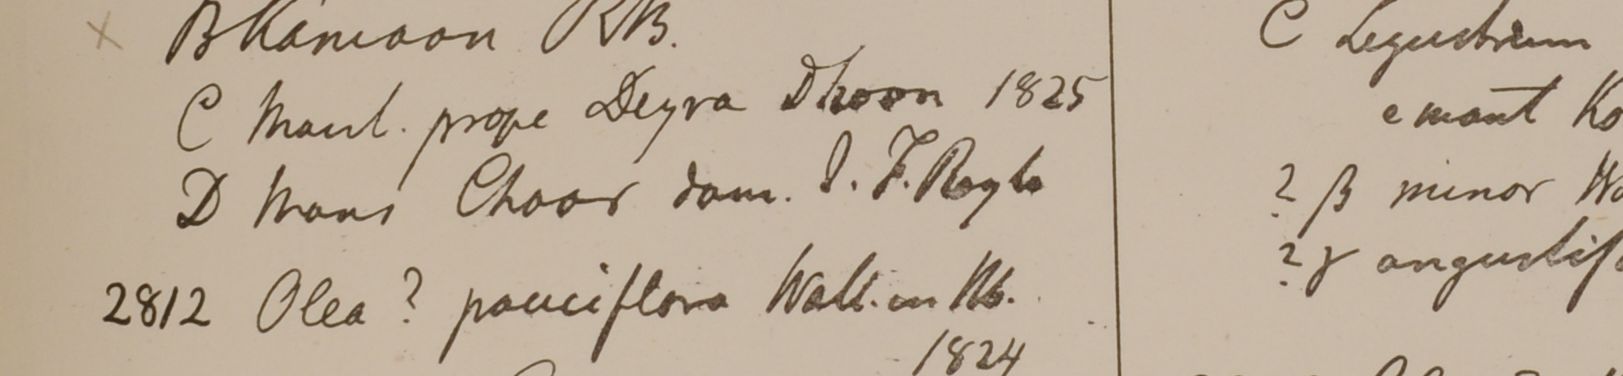 B Kamaon RB.
C Mant. prope Deyra Dhoon 1825
D Mons Choor dom. J. F. Royle
2812 Olea ? pauciflora Wall. in Hb.
1824
C Ligustrum
e mont
? β minor
? γ